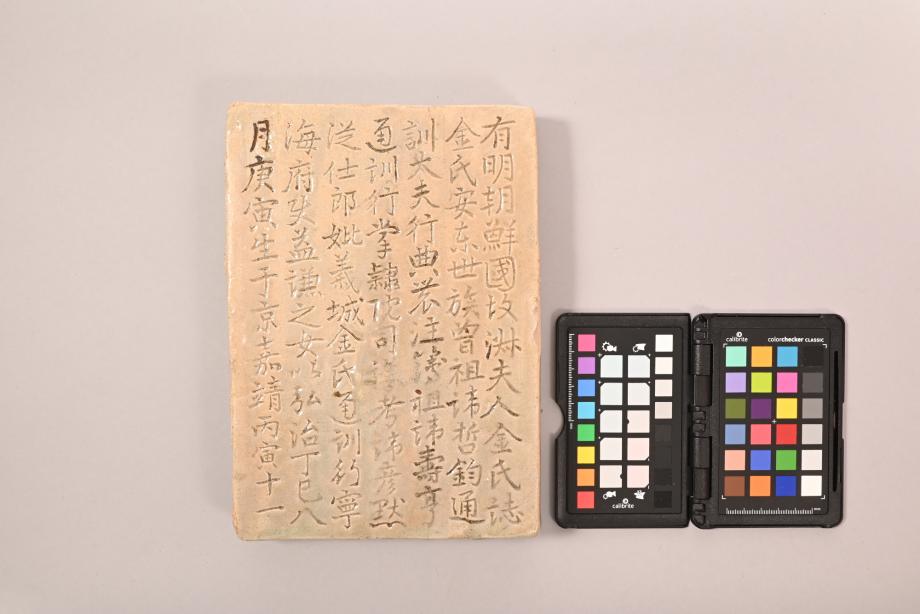 有明朝鮮國故淑夫人金氏誌
金氏安東世族曾祖諱哲鈞通
訓大夫行典農注簿祖諱壽亨
通訓行掌隸院司考諱彦默
從仕郎妣義城金氏通訓行寧
海府使益謙之女以弘治丁巳八
月庚寅生于京嘉靖丙寅十一
calibrite
calibrite
colorchecker CLASSIC